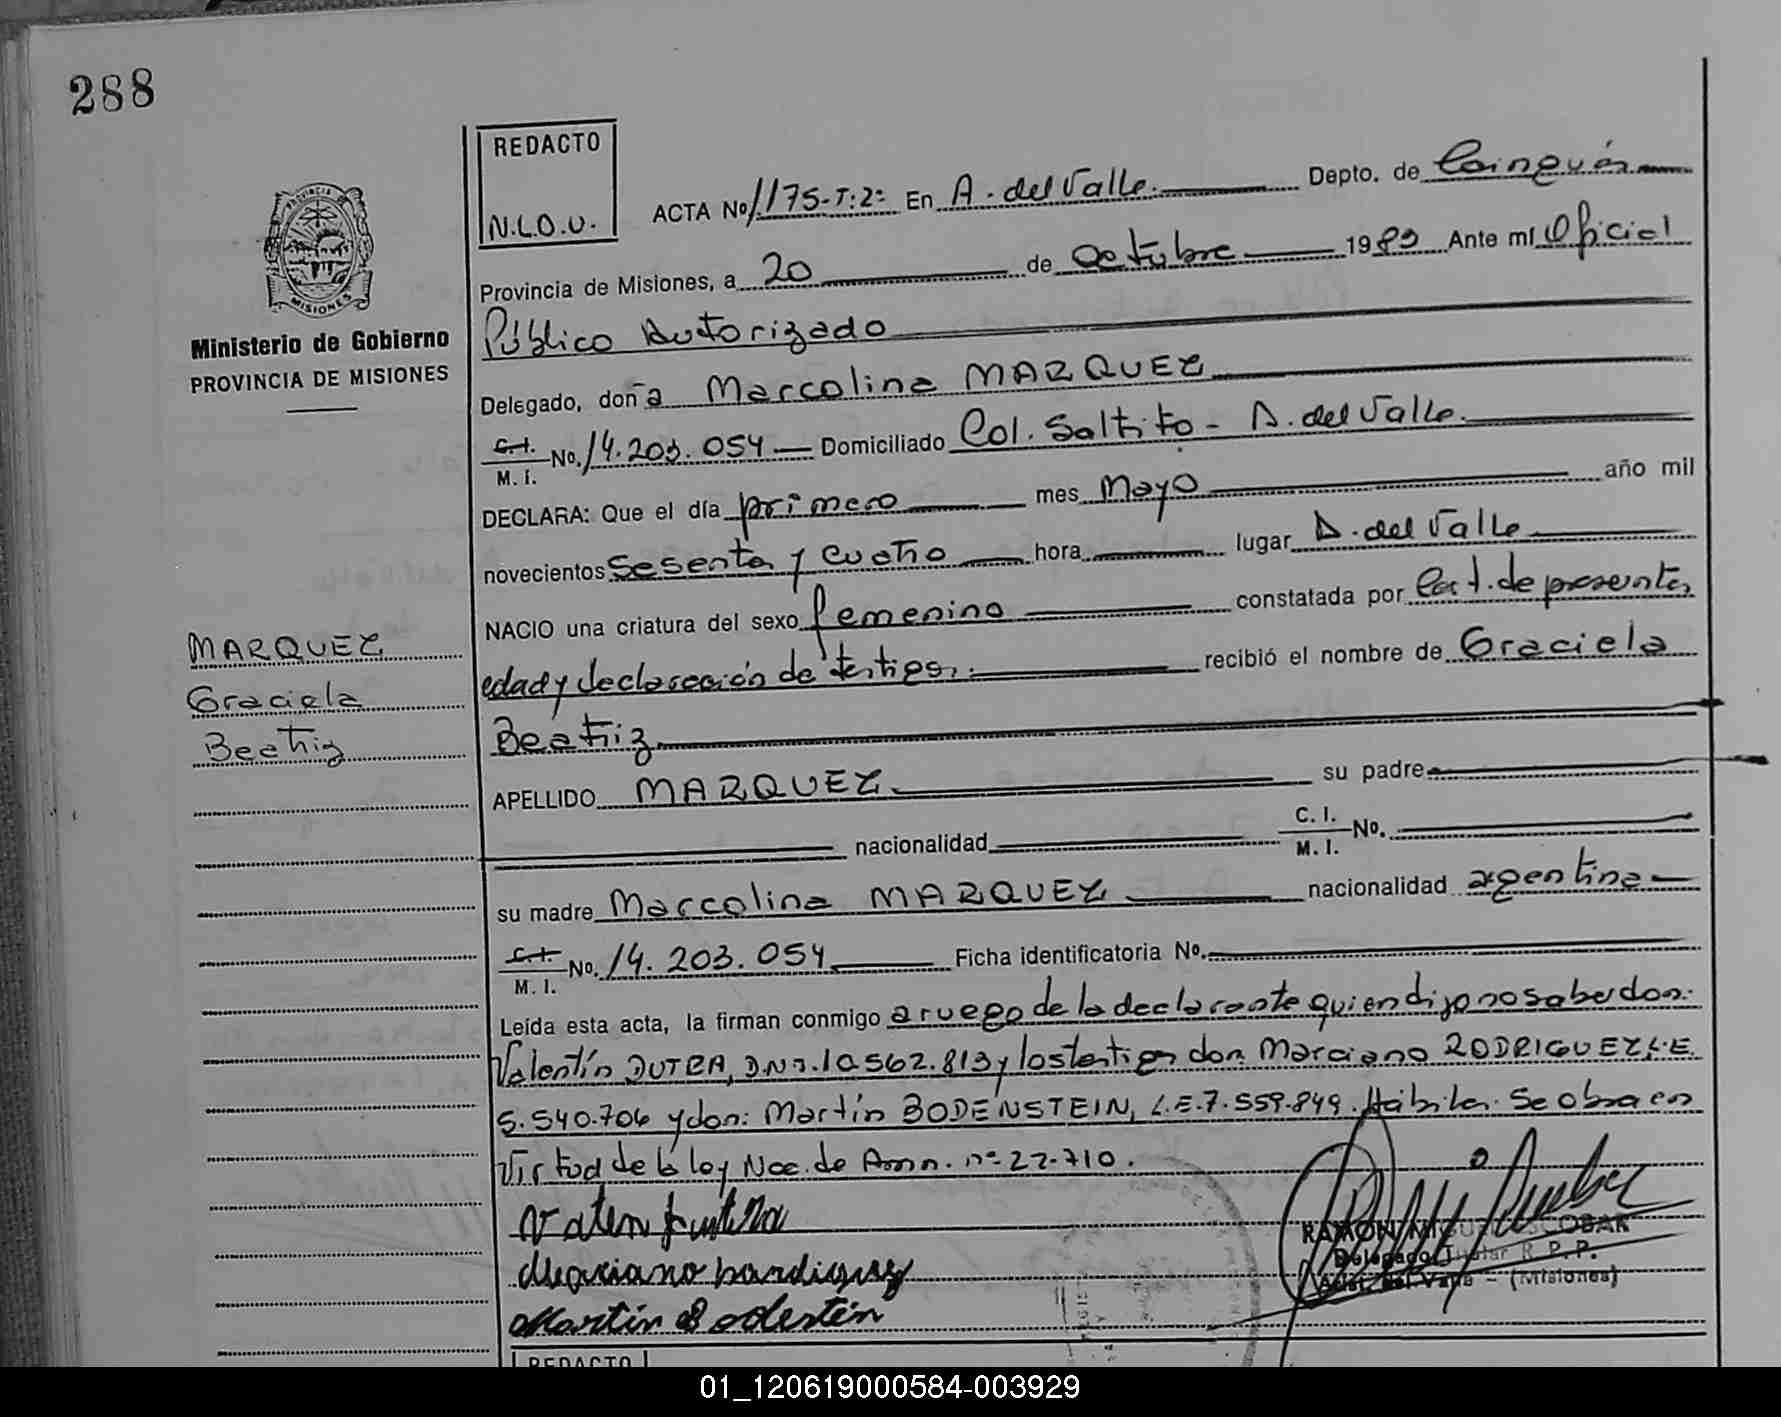 288
REDACTO
N.L.O.U.
ACTA No 1175-T:2º En A. del Valle. Depto. de Cainguás
Provincia de Misiones, a 20 de Octubre 1983 Ante mí Oficial
Público Autorizado
Delegado, doña Marcolina MARQUEZ
C.I. M. I. No. 14.203.054 Domiciliado Col. Saltito - A. del Valle.
DECLARA: Que el día primero mes Mayo año mil
novecientos sesenta y cuatro hora lugar A. del Valle
NACIO una criatura del sexo femenino constatada por Cert. de presunta
edad y declaración de testigos. recibió el nombre de Graciela
Beatriz
APELLIDO MARQUEZ su padre
nacionalidad C. I. M. I. No.
su madre Marcolina MARQUEZ nacionalidad argentina
C.I. M. I. No. 14. 203. 054 Ficha identificatoria No.
Leída esta acta, la firman conmigo a ruego de la declarante quien dijo no saber don:
Valentín DUTRA, D.N.I. 10.562.813 y los testigos don Marciano RODRIGUEZ L.E.
5.540.706 y don: Martín BODENSTEIN, L.E. 7.559.849. Hábiles. Se obra en
Virtud de la ley Nac. de Amn. nº 22.710.
Marciano
Martin Bodestein
RAMON MIGUEL ESCOBAR
Delegado Titular R. P. P.
Arist. del Valle - (Misiones)
PROVINCIA
MISIONES
Ministerio de Gobierno
PROVINCIA DE MISIONES
MARQUEZ
Graciela
Beatriz
REDACTO
01_120619000584-003929